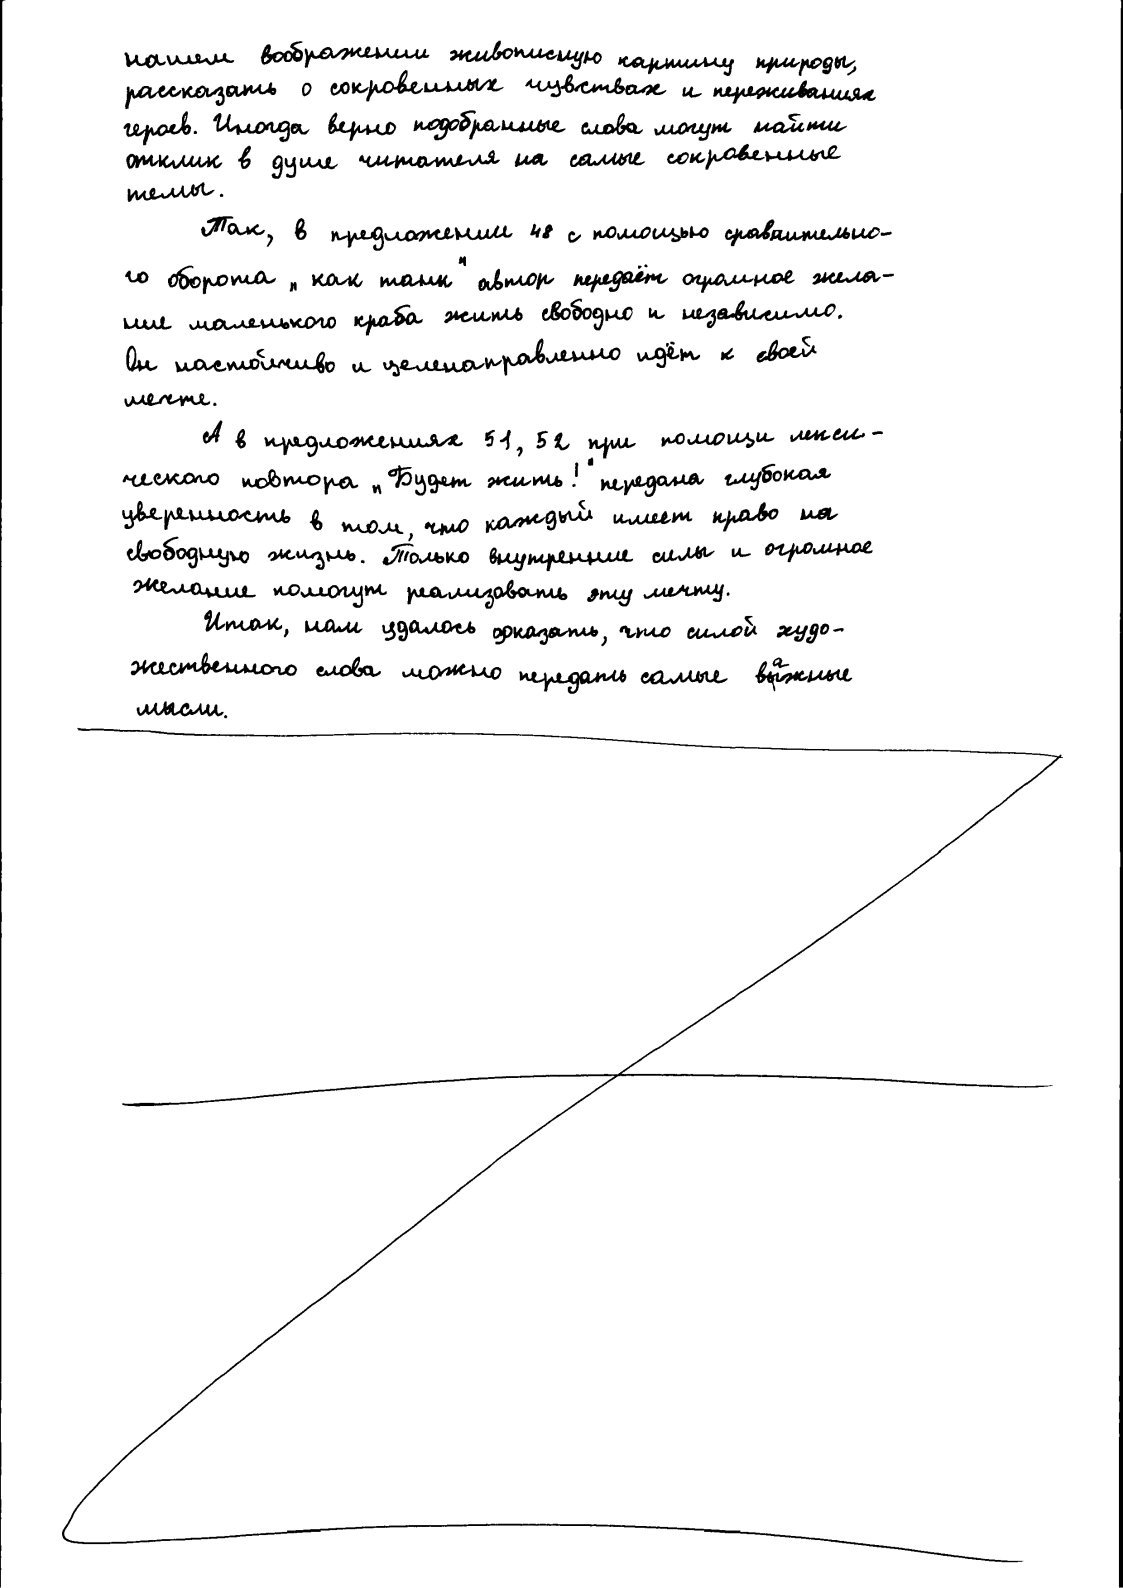 нашем воображении живописную картину природы,
рассказать о сокровенных чувствах и переживаниях
героев. Иногда верно подобранные слова могут найти
отклик в душе читателя на самые сокровенные
темы.
Так, в предложении 48 с помощью сравнительно-
го оборота „как танк" автор передаёт огромное жела-
ние маленького краба жить свободно и независимо.
Он настойчиво и целенаправленно идёт к своей
мечте.
А в предложениях 51, 52 при помощи лекси-
ческого повтора „Будет жить!" передана глубокая
уверенность в том, что каждый имеет право на
свободную жизнь. Только внутренние силы и огромное
желание помогут реализовать эту мечту.
Итак, нам удалось доказать, что силой худо-
жественного слова можно передать самые важные
мысли.